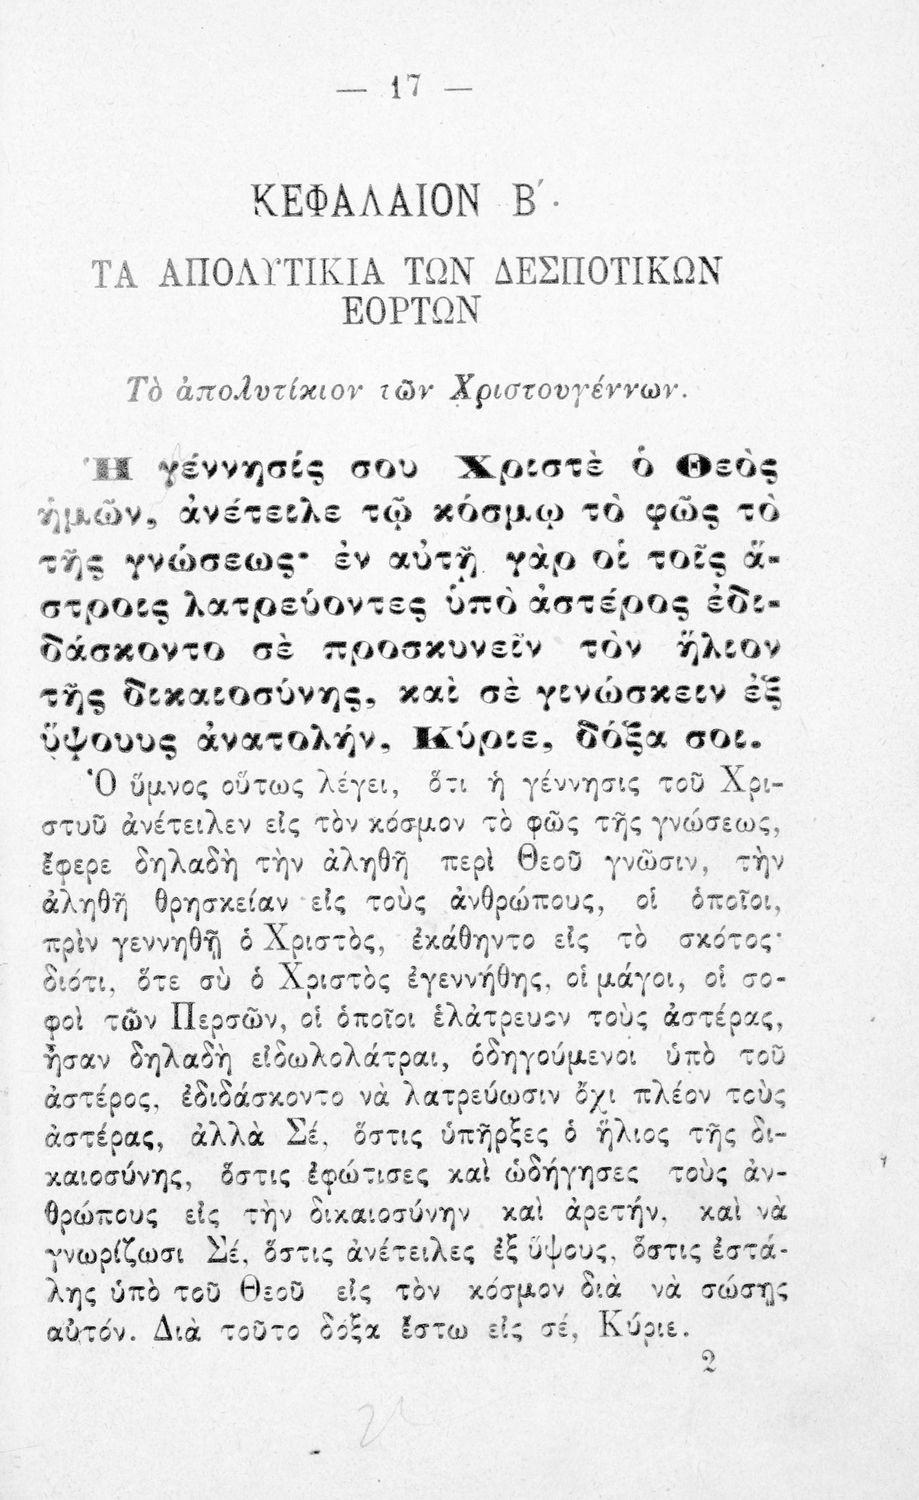 — 17 —
ΚΕΦΑΛΑΙΟΝ Β΄.
ΤΑ ΑΠΟΛΥΤΙΚΙΑ ΤΩΝ ΔΕΣΠΟΤΙΚΩΝ
ΕΟΡΤΩΝ
Τὸ ἀπολυτίκιον τῶν Χριστουγέννων.
Ἡ γέννησίς σου Χριστὲ ὁ Θεὸς
ἡμῶν, ἀνέτειλε τῷ κόσμῳ τὸ φῶς τὸ
τῆς γνώσεως· ἐν αὐτῇ γὰρ οἱ τοῖς ἄ-
στροις λατρεύοντες ὑπὸ ἀστέρος ἐδι-
δάσκοντο σὲ προσκυνεῖν τὸν ἥλιον
τῆς δικαιοσύνης, καὶ σὲ γινώσκειν ἐξ
ὕψουυς ἀνατολήν, Κύριε, δόξα σοι.
Ὁ ὕμνος οὕτως λέγει, ὅτι ἡ γέννησις τοῦ Χρι-
στυῦ ἀνέτειλεν εἰς τὸν κόσμον τὸ φῶς τῆς γνώσεως,
ἔφερε δηλαδὴ τὴν ἀληθῆ περὶ Θεοῦ γνῶσιν, τὴν
ἀληθῆ θρησκείαν εἰς τοὺς ἀνθρώπους, οἱ ὁποῖοι,
πρὶν γεννηθῇ ὁ Χριστὸς, ἐκάθηντο εἰς τὸ σκότος·
διότι, ὅτε σὺ ὁ Χριστὸς ἐγεννήθης, οἱ μάγοι, οἱ σο-
φοὶ τῶν Περσῶν, οἱ ὁποῖοι ἐλάτρευον τοὺς ἀστέρας,
ἦσαν δηλαδὴ εἰδωλολάτραι, ὁδηγούμενοι ὑπὸ τοῦ
ἀστέρος, ἐδιδάσκοντο νὰ λατρεύωσιν ὄχι πλέον τοὺς
ἀστέρας, ἀλλὰ Σέ, ὅστις ὑπῆρξες ὁ ἥλιος τῆς δι-
καιοσύνης, ὅστις ἐφώτισες καὶ ὡδήγησες τοὺς ἀν-
θρώπους εἰς τὴν δικαιοσύνην καὶ ἀρετήν, καὶ νὰ
γνωρίζωσι Σέ, ὅστις ἀνέτειλες ἐξ ὕψους, ὅστις ἐστά-
λης ὑπὸ τοῦ Θεοῦ εἰς τὸν κόσμον διὰ νὰ σώσῃς
αὐτόν. Διὰ τοῦτο δόξα ἔστω εἰς σέ, Κύριε.
2